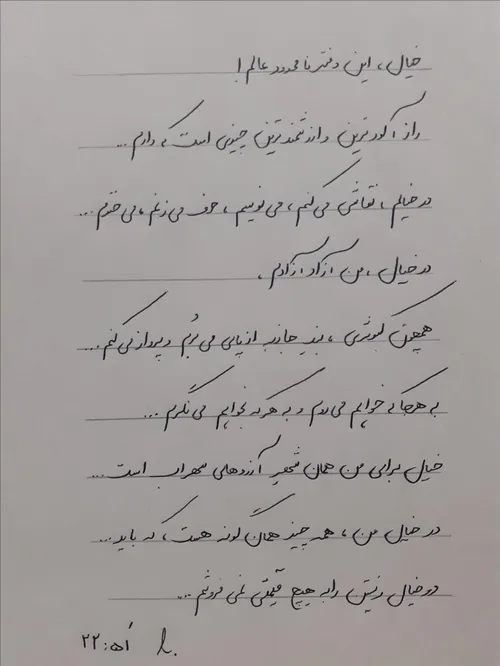 خیال، این دفتر نامحدود عالم!
رازآلودترین و ارزشمندترین چیزی است که دارم...
در خیالم، نقاشی می‌کنم، می‌نویسم، حرف می‌زنم، می‌خندم...
در خیال، من آزاد آزادم.
همچون کبوتری، بند جاذبه از پایم می‌بُرم و پرواز می‌کنم...
به هرکجا خواهم می‌روم و به هرکه بخواهم می‌نگرم...
خیال برای من همان شهرِ آرزوهای سهراب است...
در خیال من، همه چیز همان گونه هست، که باید...
در خیال زیستن را به هیچ قیمتی نمی‌فروشم...